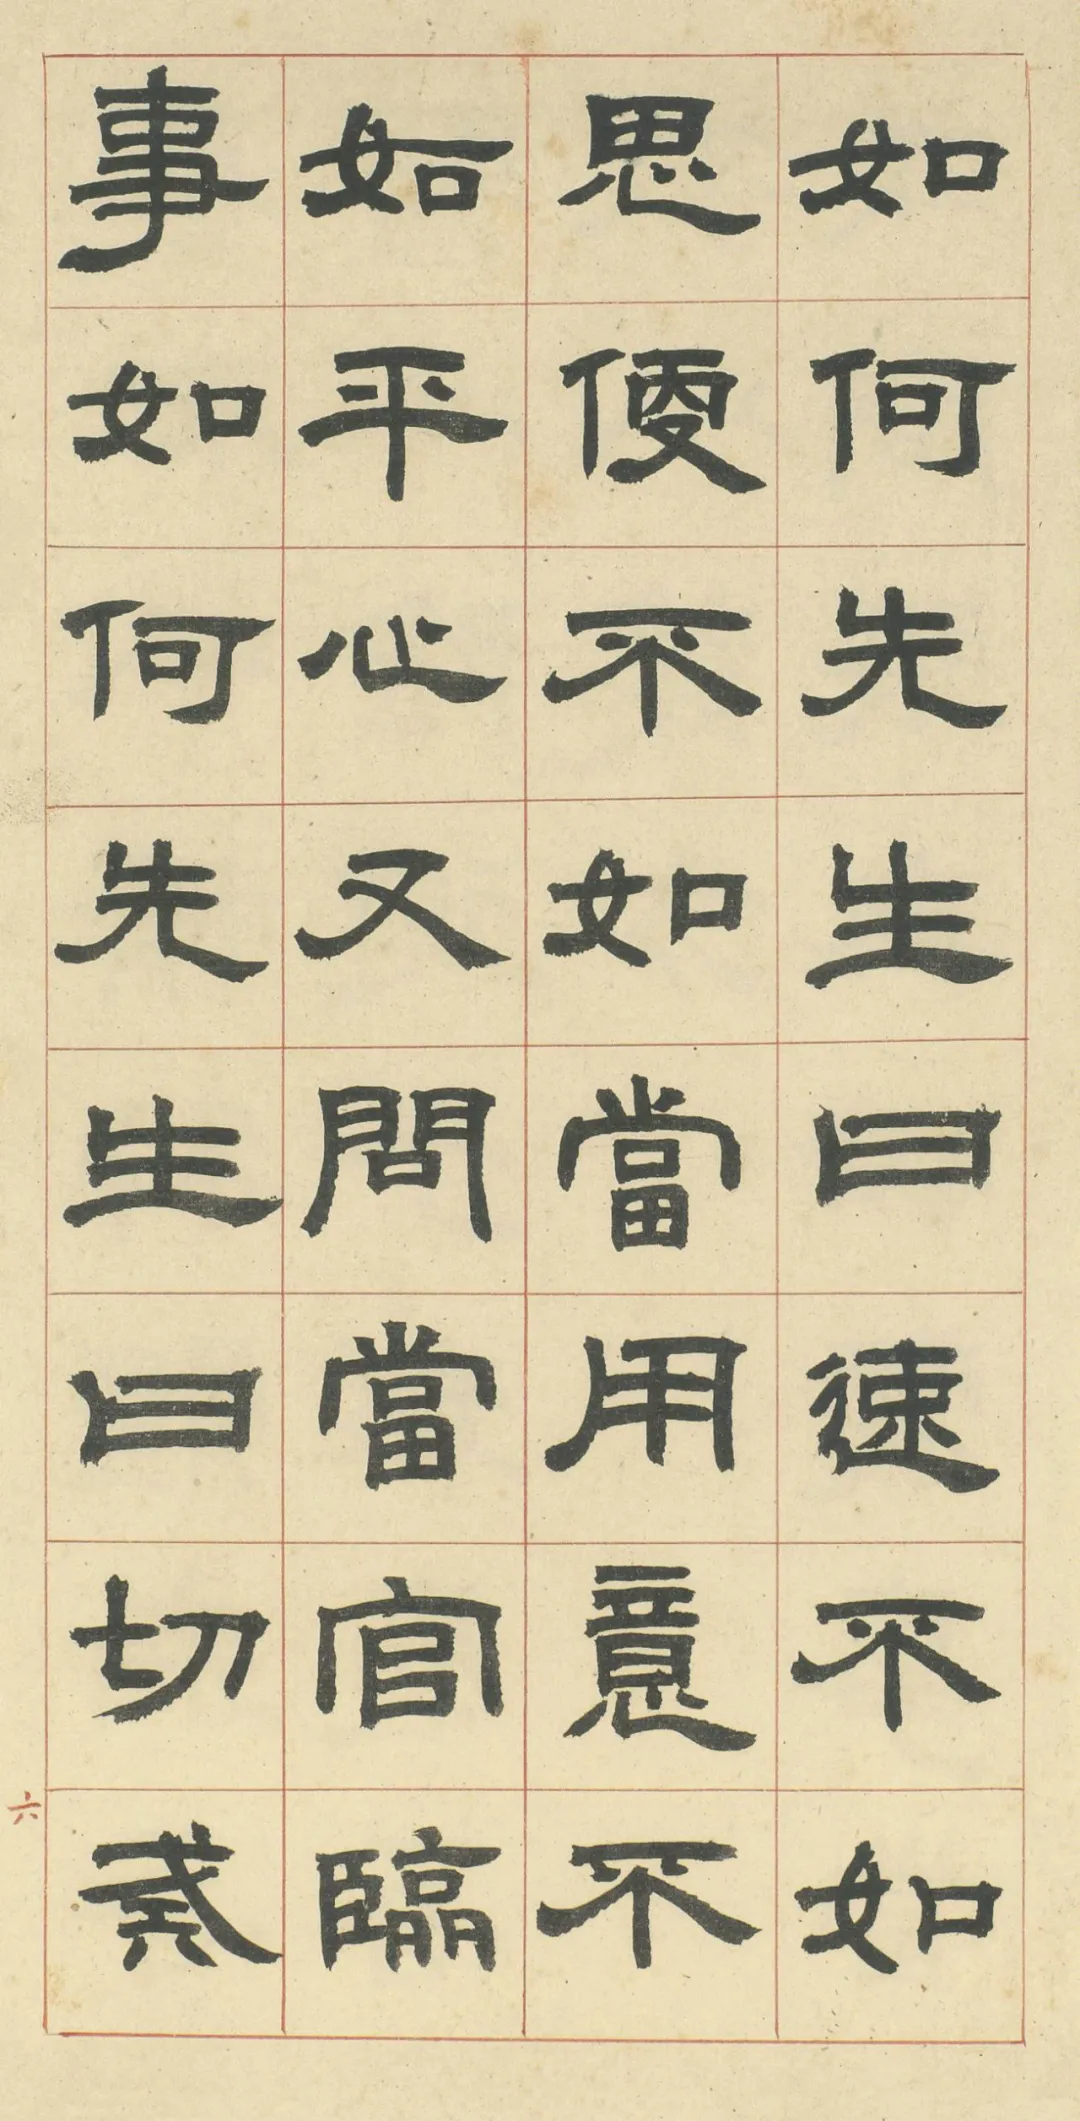 如何先生曰速不如
思便不如當用意不
如平心又問當官臨
事如何先生曰切戒
六